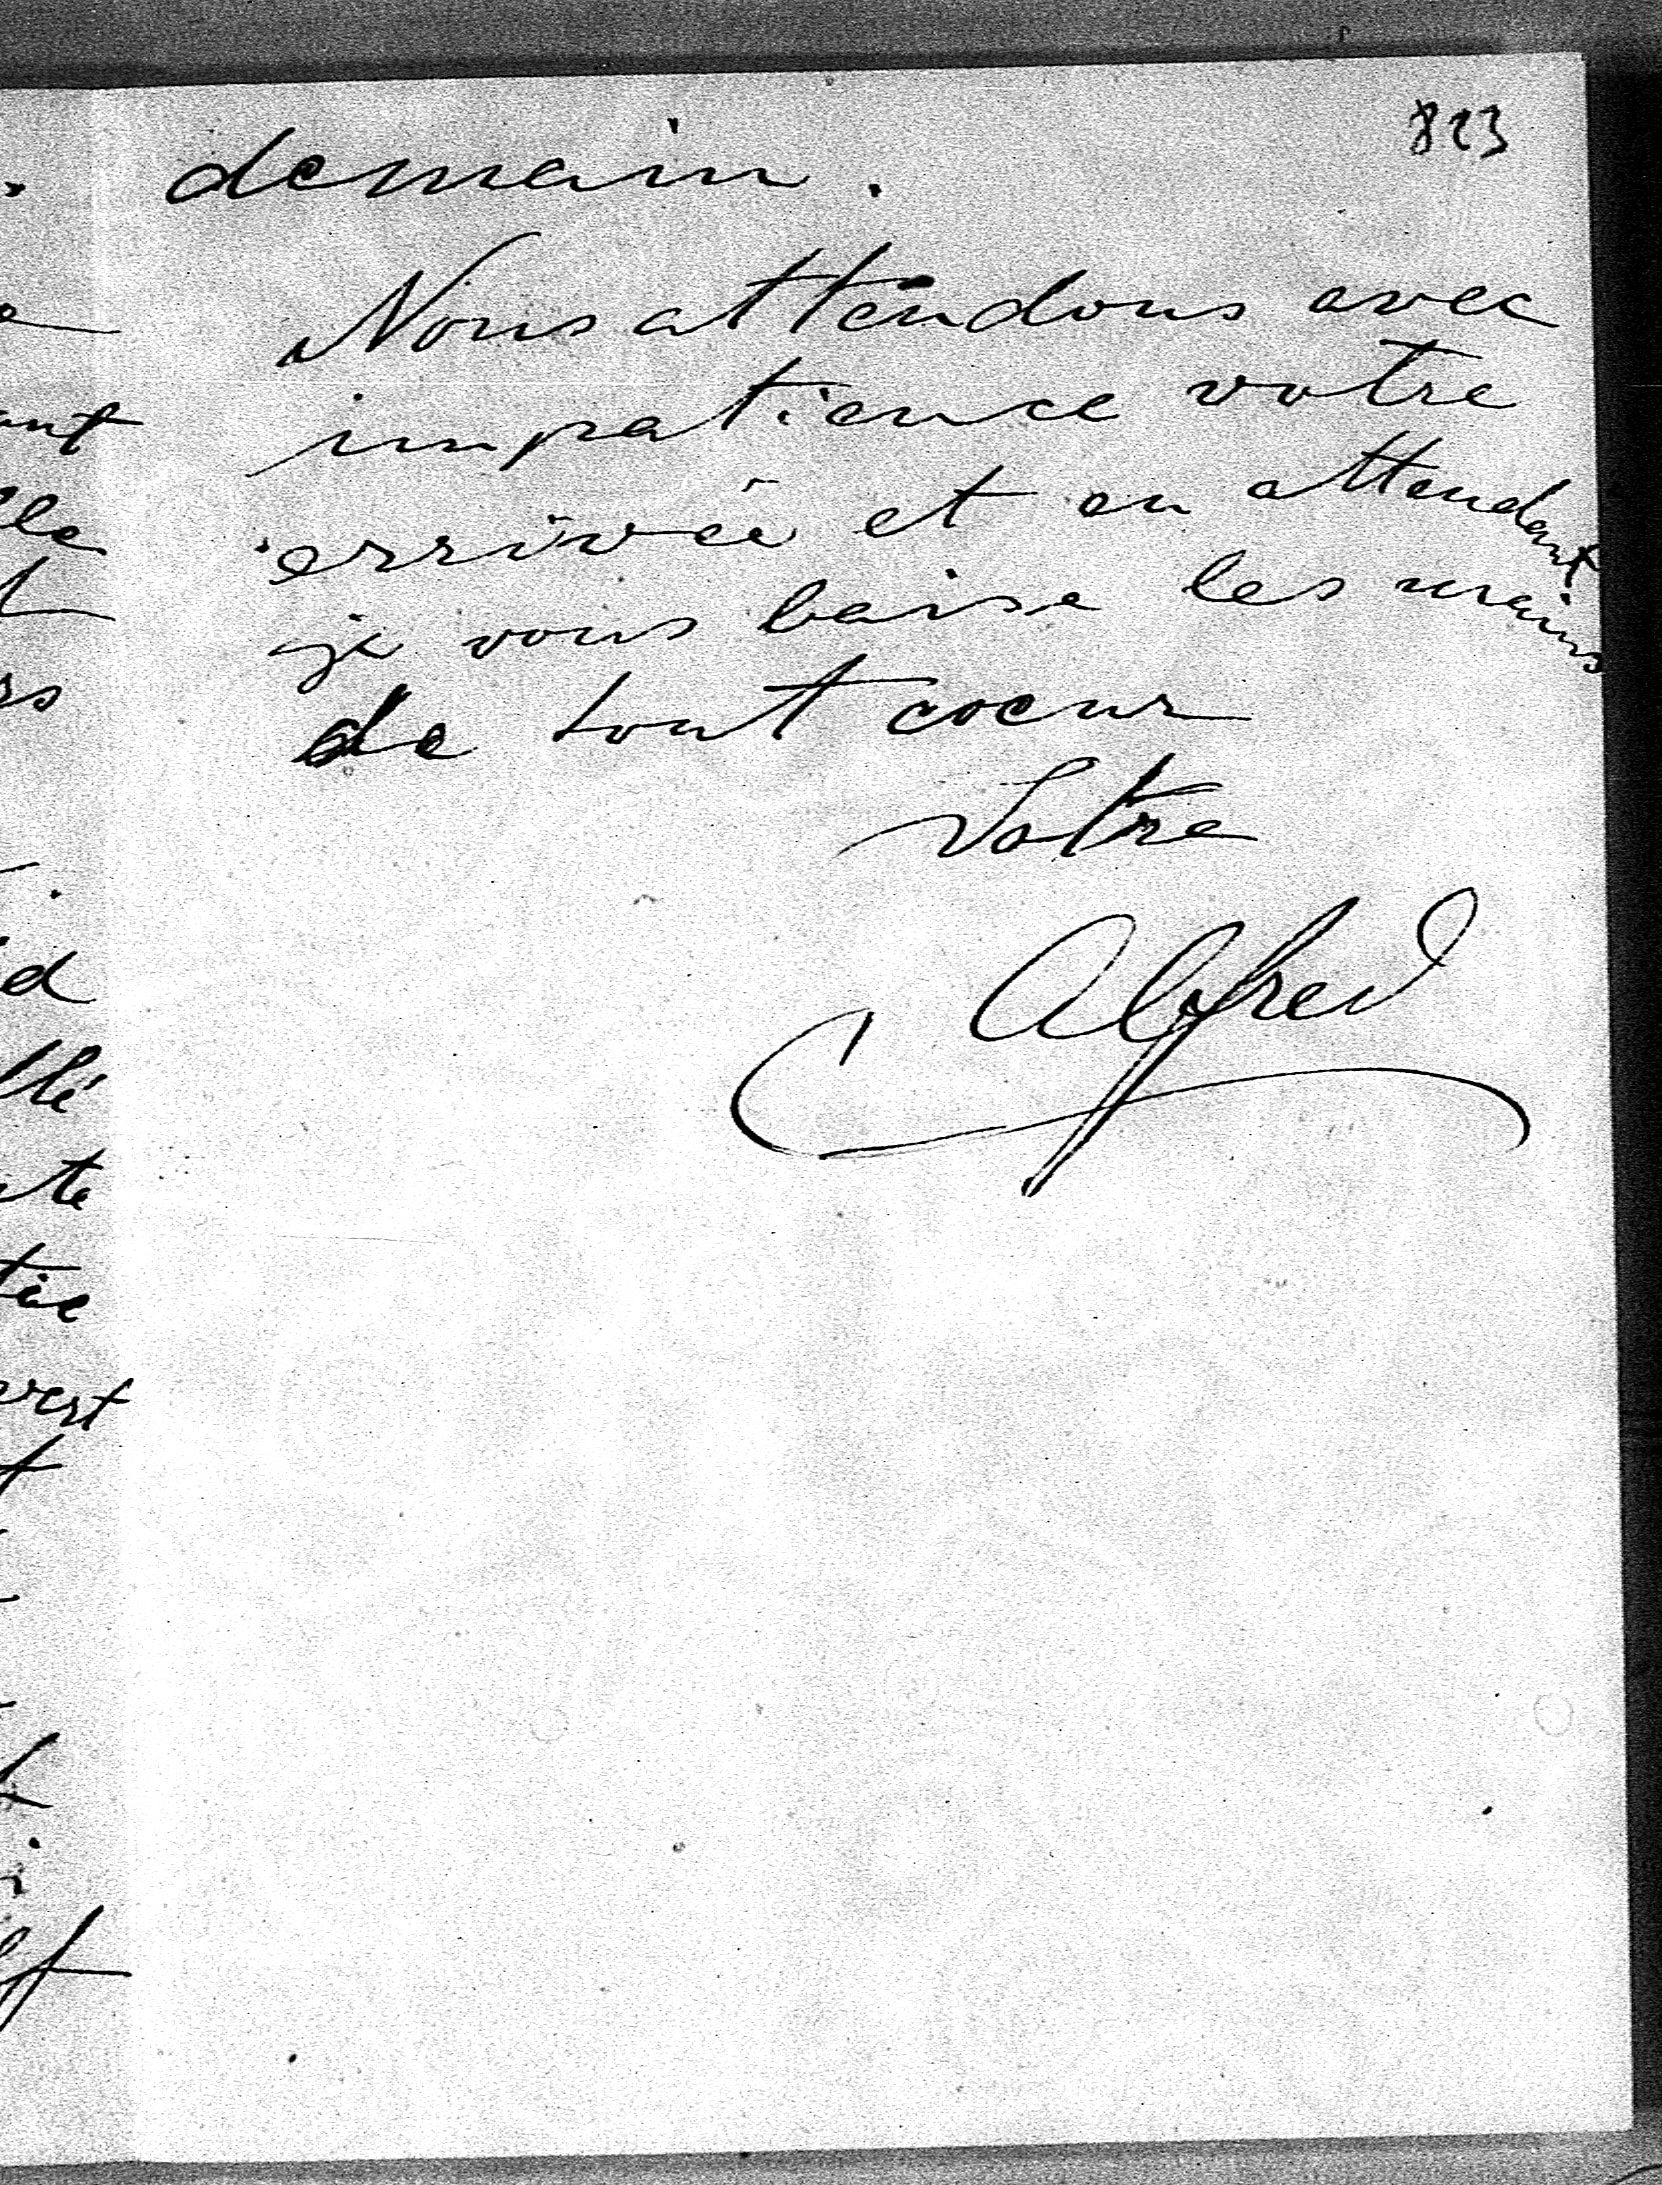 823
demain.
Nous attendons avec
impatience votre
arrivée et en attendant
je vous baise les mains
de tout coeur
Votre
Alfred
ant
lle
rs
d
llé
te
tie
erst